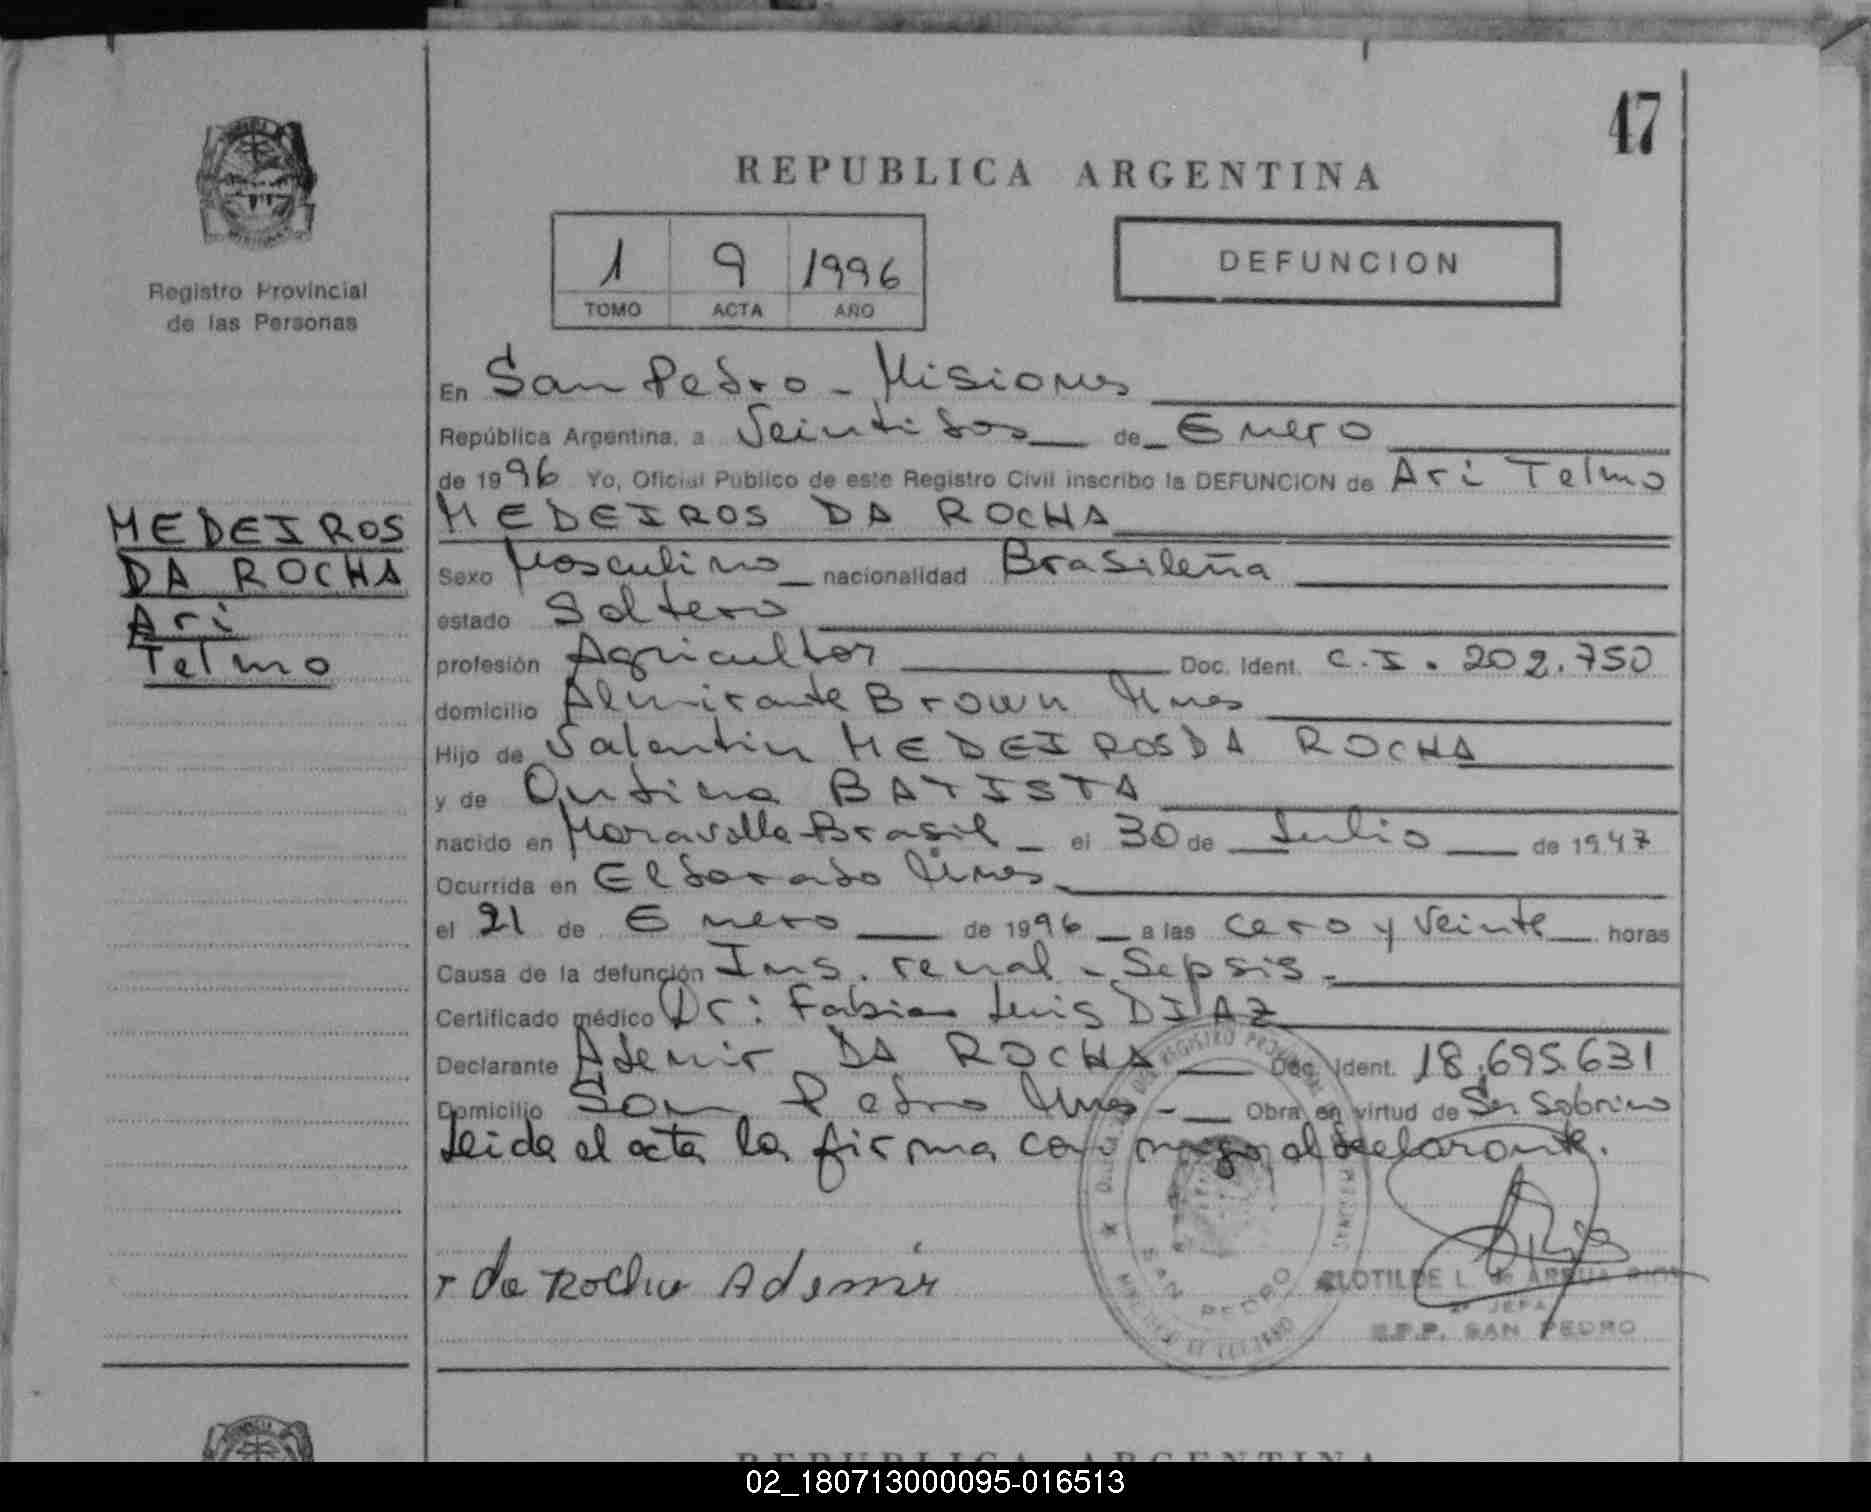 47
REPUBLICA ARGENTINA
1 9 1996
TOMO ACTA AÑO
DEFUNCION
Registro Provincial
de las Personas
MEDEIROS
DA ROCHA
Ari
Telmo
En San Pedro - Misiones
República Argentina, a Veintidos de Enero
de 1996 Yo, Oficial Público de este Registro Civil inscribo la DEFUNCION de Ari Telmo
MEDEIROS DA ROCHA
Sexo Masculino nacionalidad Brasileña
estado Soltero
profesión Agricultor Doc. Ident. C.I. 202.750
domicilio Almirante Brown Mnes
Hijo de Valentin MEDEIROS DA ROCHA
y de Ondina BATISTA
nacido en Maravilla-Brasil el 30 de Julio de 1947
Ocurrida en Eldorado Mnes
el 21 de Enero de 1996 a las cero y veinte horas
Causa de la defunción Ins. renal - Sepsis.
Certificado médico Dr: Fabian Luis DIAZ
Declarante Ademir DA ROCHA Doc. Ident. 18.695.631
Domicilio San Pedro Mnes - Obra en virtud de Ser Sobrino
Leida el acta la firma conmigo el declarante.
da Rocha Ademir
SAN PEDRO
CLOTILDE L. de ARRUA RIOS
JEFA
SAN PEDRO
REPUBLICA ARGENTINA
02_180713000095-016513